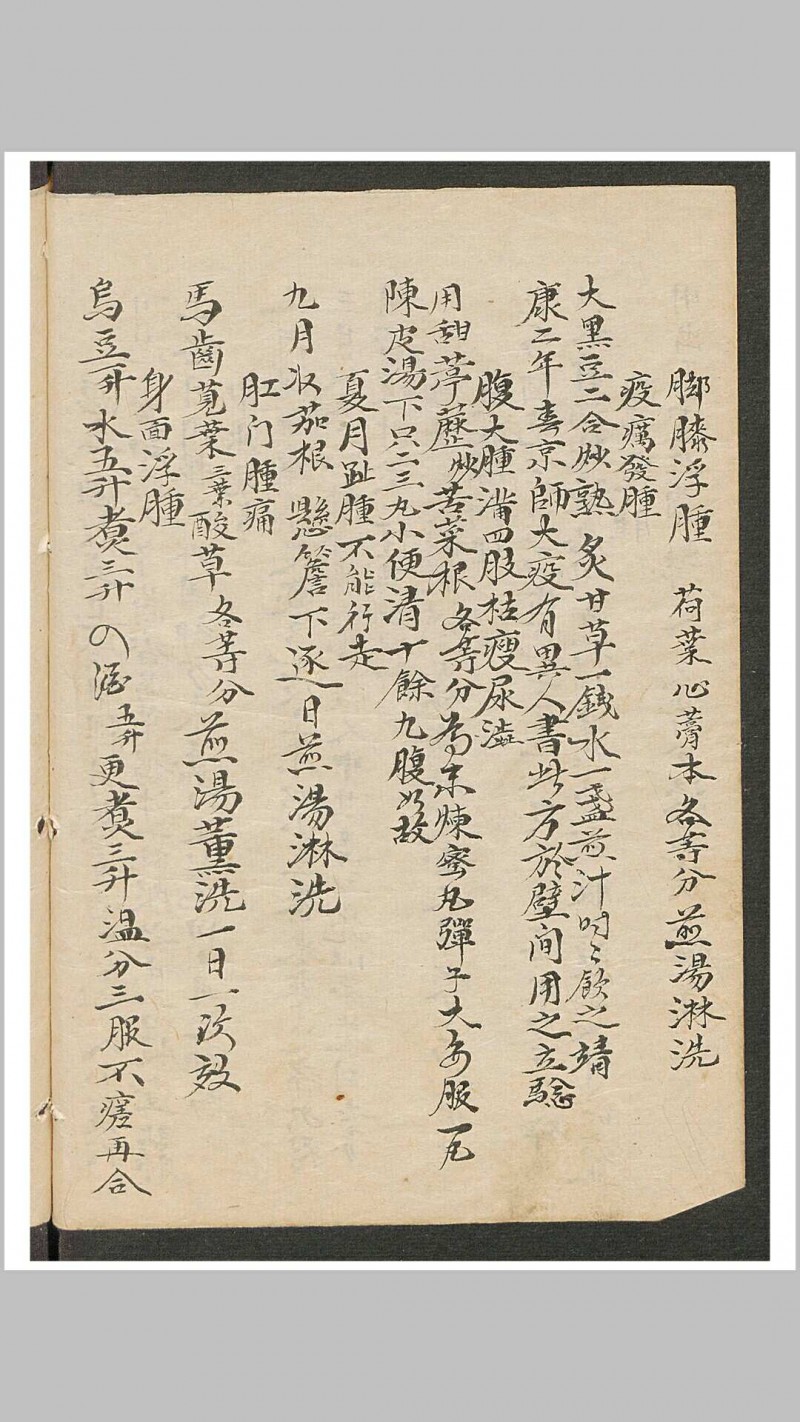 脚膝浮腫　荷葉心藁本各等分煎湯淋洗
疫癘發腫
大黑豆二合炒熟 炙甘草一錢水一盞煎汁時々飲之靖
康二年春京師大疫有異人書此方於壁间用之立驗
腹大腫滿四肢枯瘦尿澁
用甜葶藶炒苦菜根各等分為末煉蜜丸彈子大每服一丸
陳皮湯下只二三丸小便清十餘丸腹如故
夏月趾腫不能行走
九月收茄根懸簷下逐日煎湯淋洗
肛门腫痛
馬齒莧葉三葉酸草各等分煎湯薰洗一日一次效
身面浮腫
烏豆一升水五升煮三升 酒五升更煮三升温分三服不瘥再合